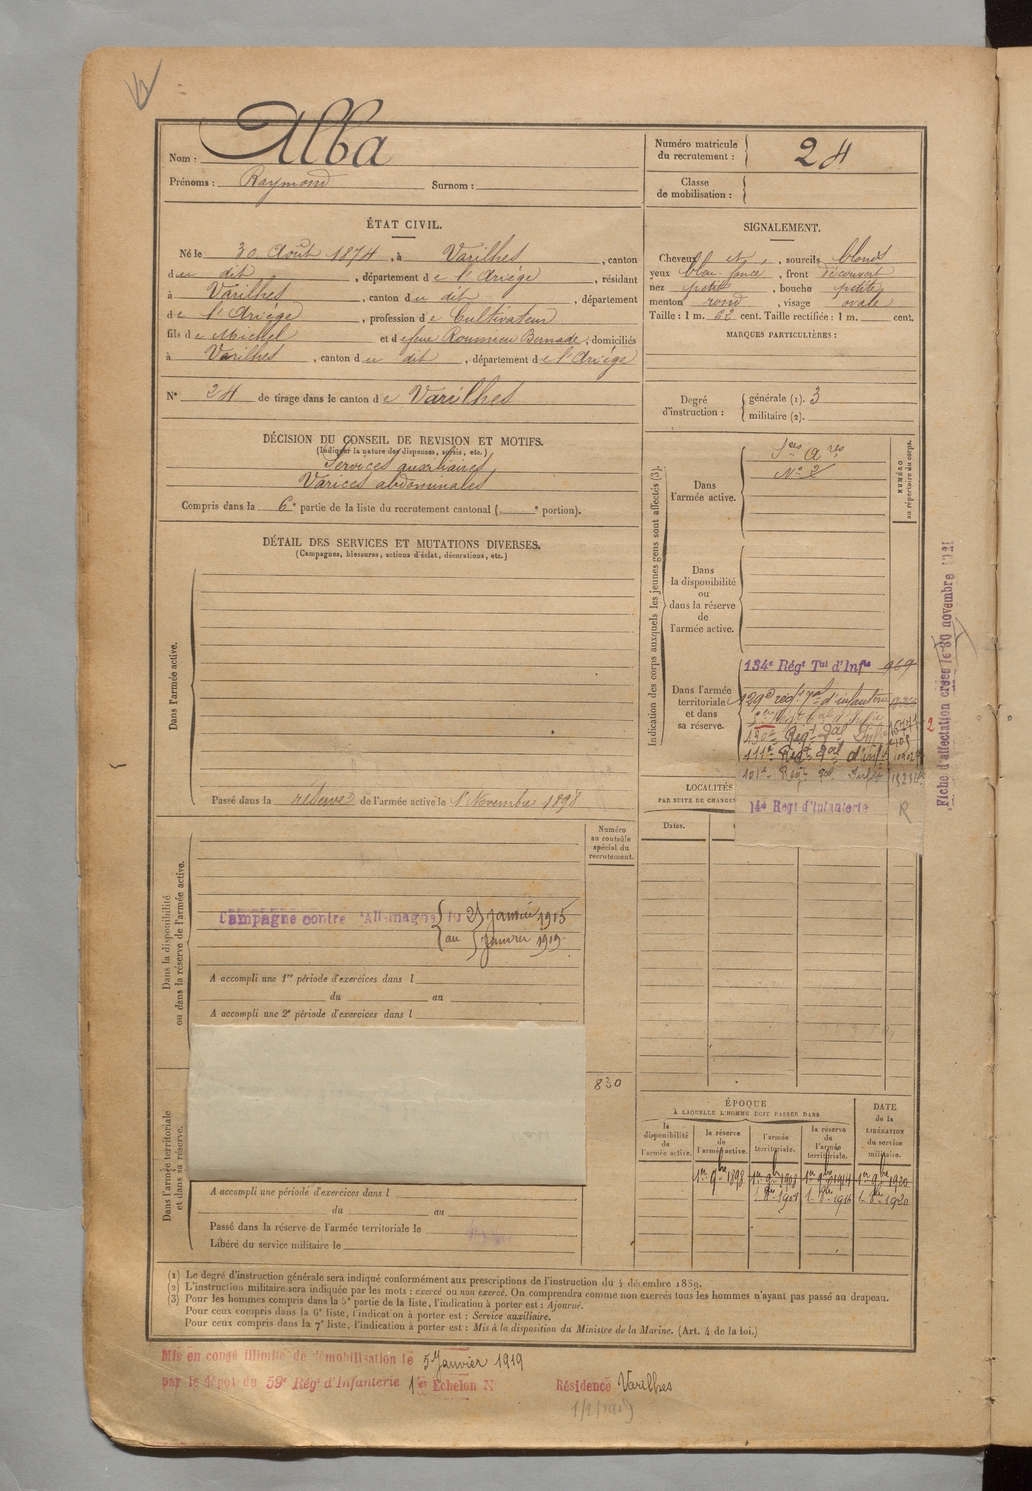 Nom : Alba
Prénoms : Raymond Surnom :
Numéro matricule du recrutement : 24
Classe de mobilisation :
ÉTAT CIVIL.
Né le 30 Août 1874, à Varilhes, canton
du dit, département de l'Ariège, résidant
à Varilhes, canton du dit, département
de l'Ariège, profession de Cultivateur
fils de Michel et de feue Roumieu Bernade, domiciliés
à Varilhes, canton du dit, département de l'Ariège
N° 24 de tirage dans le canton de Varilhes
SIGNALEMENT.
Cheveux et, sourcils blonds
yeux bleu foncé, front découvert
nez petit, bouche petite
menton rond, visage ovale
Taille : 1 m. 62 cent. Taille rectifiée : 1 m. cent.
MARQUES PARTICULIÈRES :
Degré d'instruction : générale (1). 3
militaire (2).
DÉCISION DU CONSEIL DE REVISION ET MOTIFS.
(Indiquer la nature des dispenses, sursis, etc.)
Services auxiliaires
Varices abdominales
Compris dans la 6e partie de la liste du recrutement cantonal ( e portion).
DÉTAIL DES SERVICES ET MUTATIONS DIVERSES.
(Campagnes, blessures, actions d'éclat, décorations, etc.)
Dans l'armée active.
Passé dans la réserve de l'armée active le 1er Novembre 1898
Indication des corps auxquels les jeunes gens sont affectés (3).
NUMÉRO au répertoire du corps.
Dans l'armée active.
Sces Ares
N° 2
Dans la disponibilité ou dans la réserve de l'armée active.
Dans l'armée territoriale et dans sa réserve.
134e Régt Tal d'Infie 969
129e régt tal d'infanterie
130e Régt Tal Infie
111e Régt Tal d'Infie
101e Régt Tal Infie
14e Régt d'Infanterie R
LOCALITÉS
PAR SUITE DE CHANGEM
Dates.
Fiche d'affectation créée le 30 novembre 1921
Dans la disponibilité ou dans la réserve de l'armée active.
Numéro au contrôle spécial du recrutement.
Campagne contre l'Allemagne du 25 janvier 1915
au 5 Janvier 1919.
A accompli une 1re période d'exercices dans l
du au
A accompli une 2e période d'exercices dans l
830
Dans l'armée territoriale et dans sa réserve.
A accompli une période d'exercices dans l
du au
Passé dans la réserve de l'armée territoriale le
Libéré du service militaire le
ÉPOQUE
À LAQUELLE L'HOMME DOIT PASSER DANS
la disponibilité de l'armée active.
la réserve de l'armée active.
l'armée territoriale.
la réserve de l'armée territoriale.
DATE de la LIBÉRATION du service militaire.
1er 9bre 1898 1er 9bre 1908 1er 9bre 1914 1er 9bre 1920
1er 8bre 1908 1er 8bre 1914 1er 8bre 1920
(1) Le degré d'instruction générale sera indiqué conformément aux prescriptions de l'instruction du 4 décembre 1889.
(2) L'instruction militaire sera indiquée par les mots : exercé ou non exercé. On comprendra comme non exercés tous les hommes n'ayant pas passé au drapeau.
(3) Pour les hommes compris dans la 5e partie de la liste, l'indication à porter est : Ajourné.
Pour ceux compris dans la 6e liste, l'indication à porter est : Service auxiliaire.
Pour ceux compris dans la 7e liste, l'indication à porter est : Mis à la disposition du Ministre de la Marine. (Art. 4 de la loi.)
Mis en congé illimité de démobilisation le 5 Janvier 1919
par le dépôt du 59e Régt d'Infanterie 1er Echelon N° Résidence Varilhes